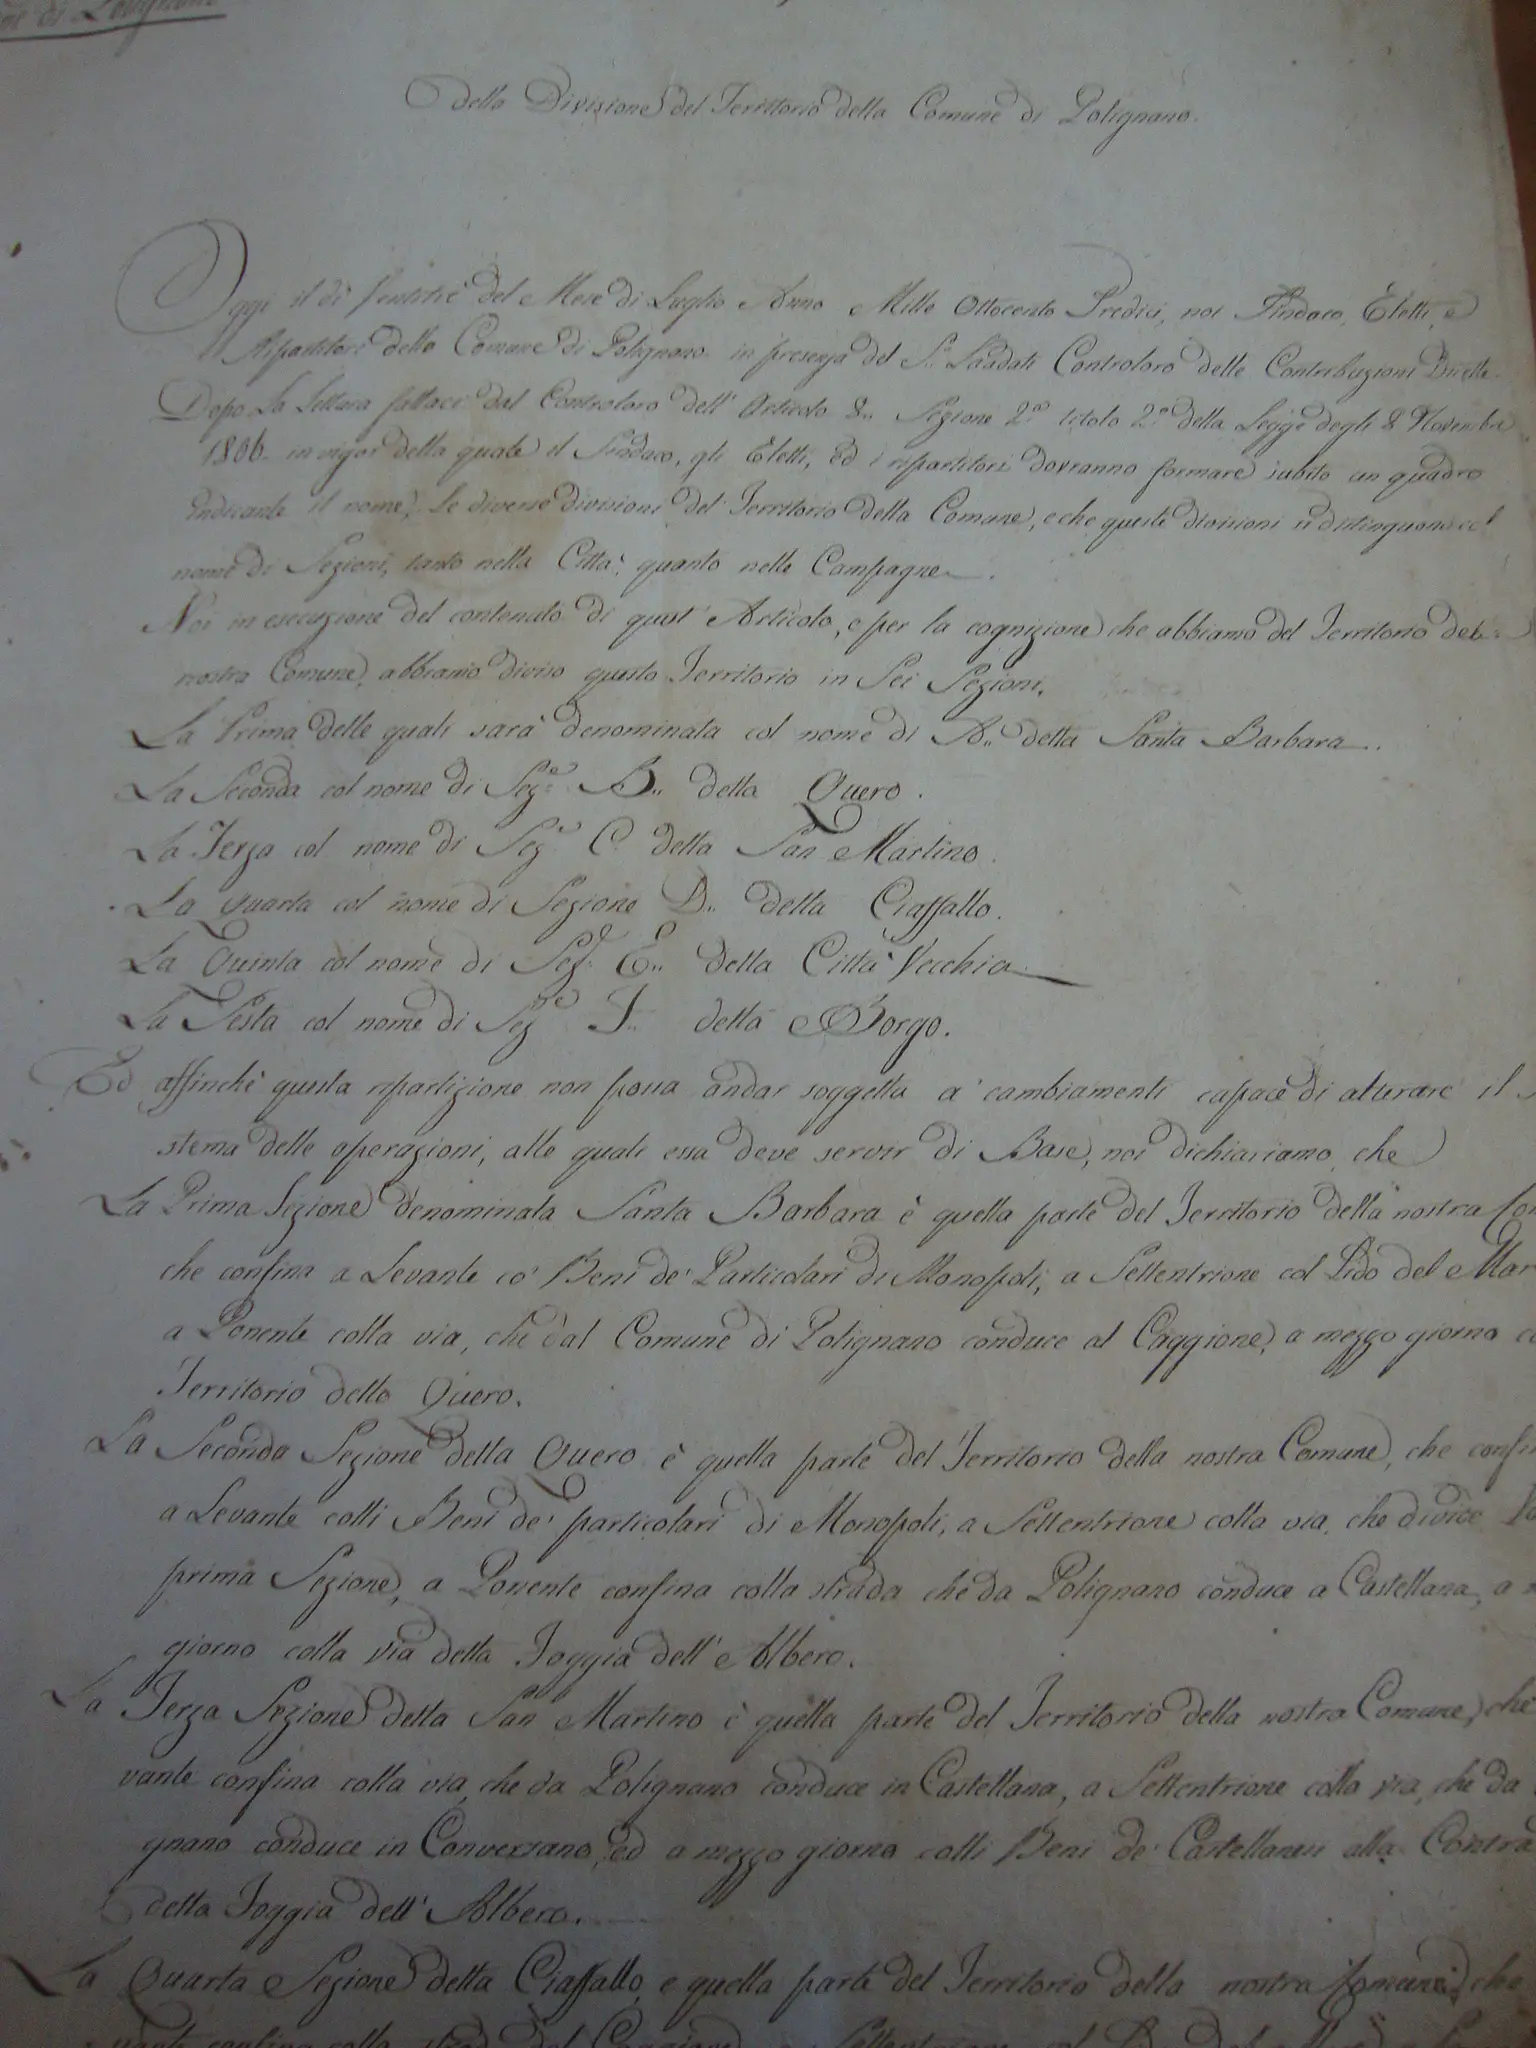 di Polignano
Della Divisione del Territorio della Comune di Polignano.
Oggi il dì Ventitrè del Mese di Luglio Anno Mille Ottocento Tredici, noi Sindaco, Eletti, e
Ripartitori della Comune di Polignano in presenza del S.r Laudati Controloro delle Contribuzioni Dirette
Dopo La Lettura fattaci dal Controloro dell' Articolo 8.. Sezione 2.a titolo 2.o della Legge degli 8 Novembre
1806 in vigor della quale il Sindaco, gli Eletti, ed i ripartitori dovranno formare subito un quadro
indicante il nome, Le diverse divisioni del Territorio della Comune, e che queste divisioni si distinguono col
nome di Sezioni, tanto nella Città, quanto nelle Campagne.
Noi in esecuzione del contenuto di quest' Articolo, e per la cognizione che abbiamo del Territorio della
nostra Comune, abbiamo diviso questo Territorio in Sei Sezioni.
La Prima delle quali sarà denominata col nome di A.. detta Santa Barbara.
La Seconda col nome di Sez.e B.. detta Quero.
La Terza col nome di Sez.e C. detta San Martino.
La Quarta col nome di Sezione D.. detta Ciaffallo.
La Quinta col nome di Sez.e E.. detta Città Vecchia
La Sesta col nome di Sez.ne F.. detta Borgo.
Ed affinchè questa ripartizione non possa andar soggetta a' cambiamenti capace di alterare il
stema delle operazioni, alle quali essa deve servir di Base, noi dichiariamo, che
La Prima Sezione denominata Santa Barbara è quella parte del Territorio della nostra
che confina a Levante co' Beni de' Particolari di Monopoli, a Settentrione col Lido del Mar
a Ponente colla via, che dal Comune di Polignano conduce al Caggione, a mezzo giorno
Territorio detto Quero.
La Seconda Sezione detta Quero è quella parte del Territorio della nostra Comune, che
a Levante colli Beni de' particolari di Monopoli, a Settentrione colla via, che divide
prima Sezione, a Ponente confina colla strada che da Polignano conduce a Castellana, a
giorno colla via della Foggia dell' Albero.
La Terza Sezione detta San Martino è quella parte del Territorio della nostra Comune, che
vante confina colla via, che da Polignano conduce in Castellana, a Settentrione colla via, che da
gnano conduce in Conversano, ed a mezzo giorno colli Beni de' Castellanesi alla
della Foggia dell' Albero.
La Quarta Sezione detta Ciaffallo, e quella parte del Territorio della nostra Comune, che
vante confina colla